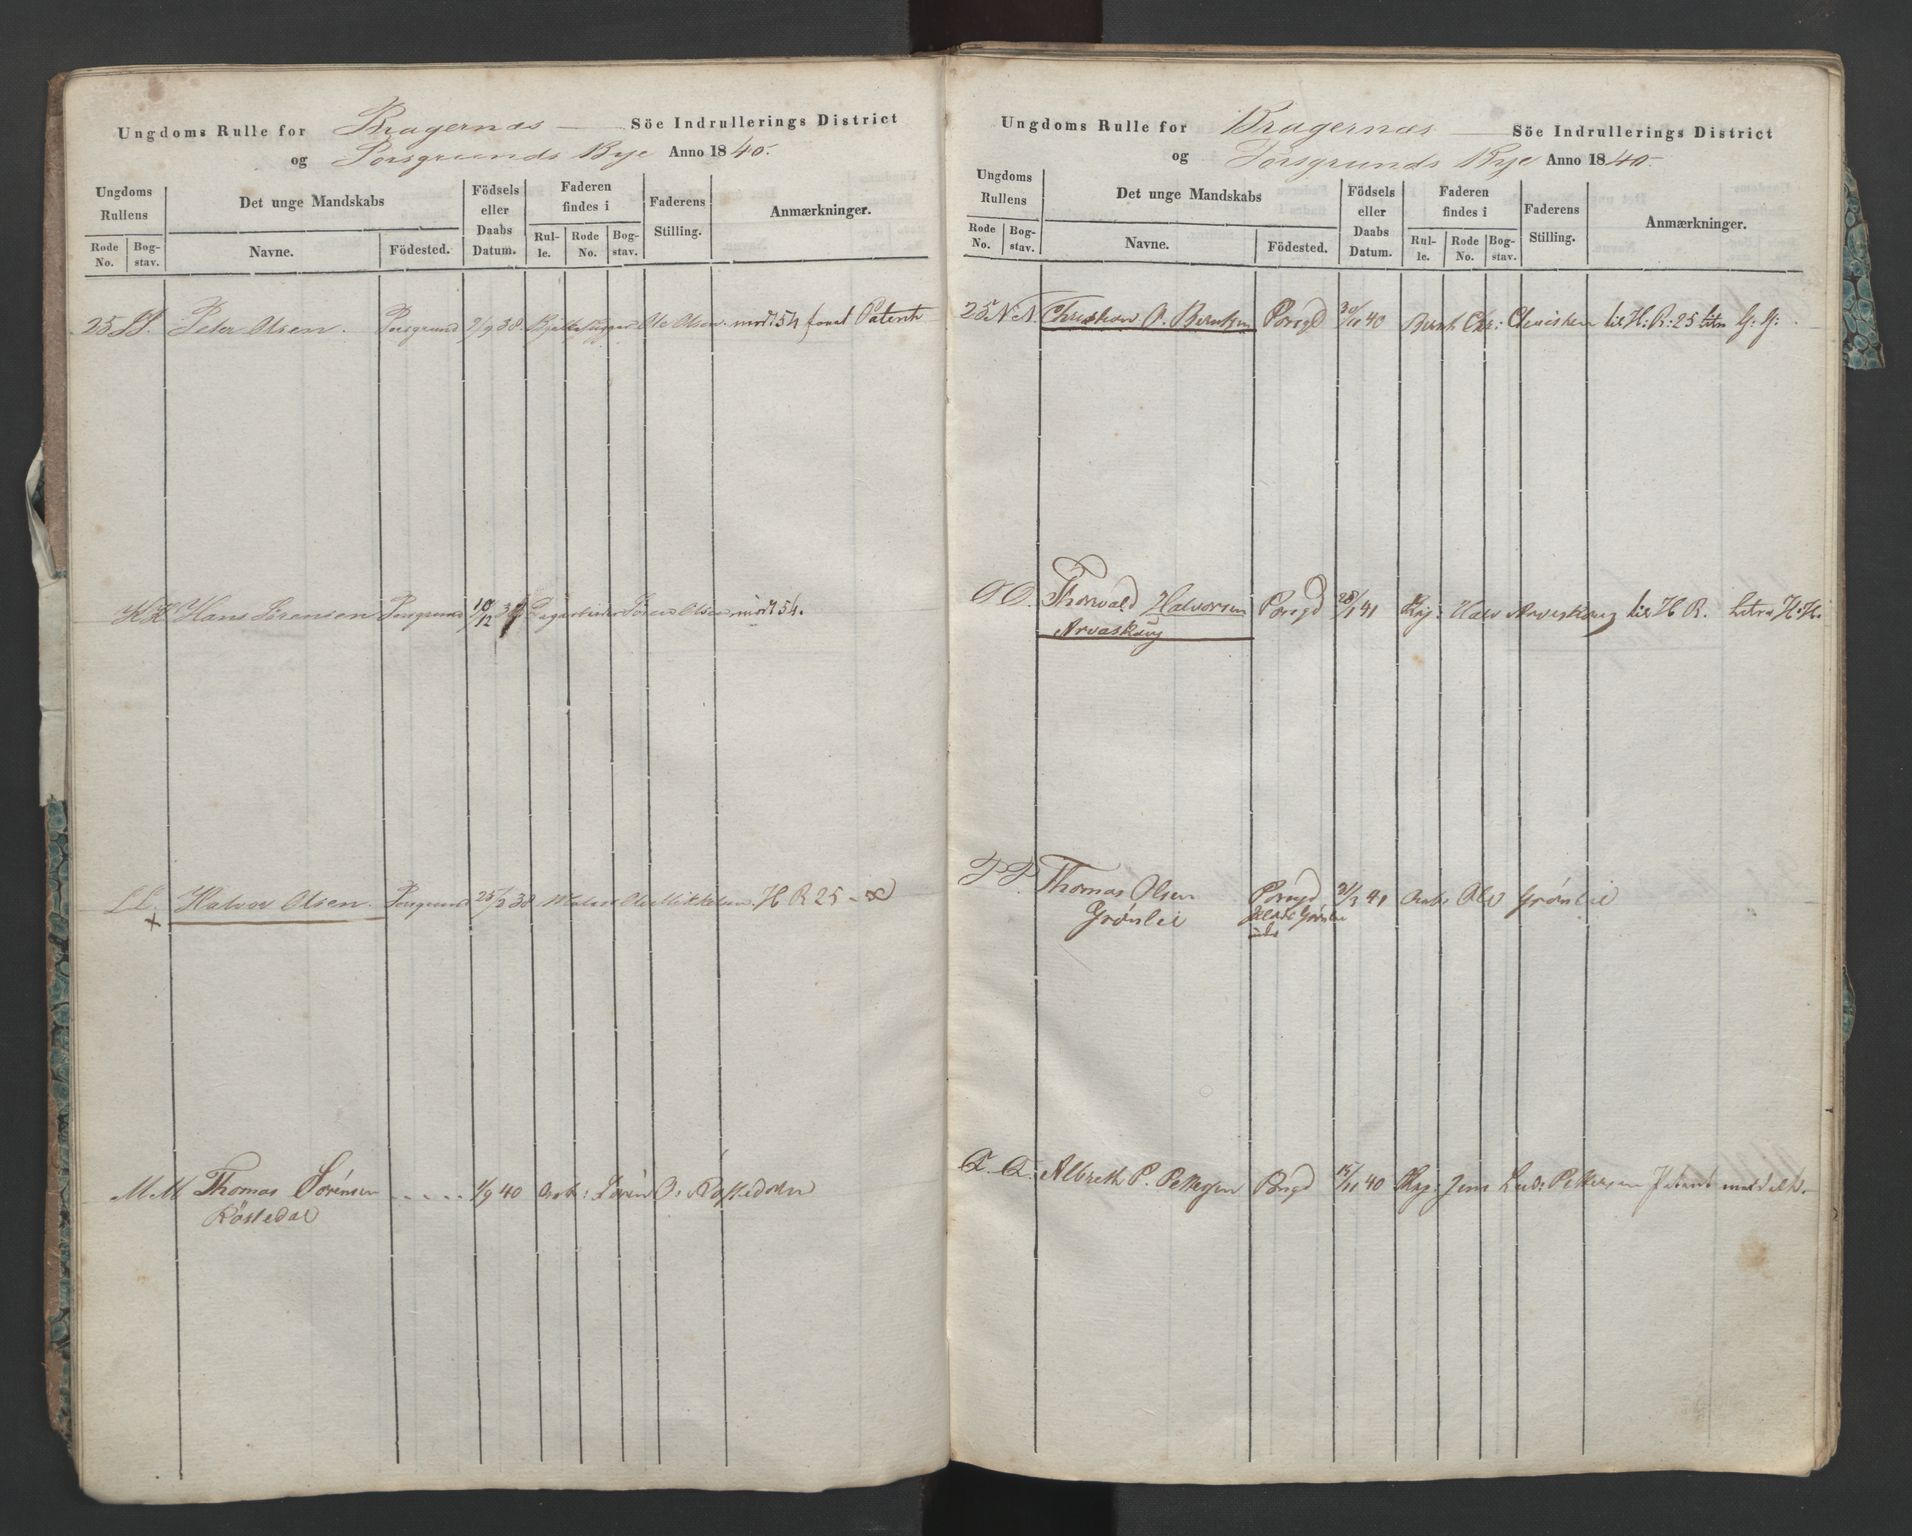 Ungdoms Rulle for Bragernæs Söe Indrullerings District
og Porsgrunds Bye Anno 1840.
Ungdoms Rullens
Rode No.
Bogstav.
Det unge Mandskabs
Navne.
Födested.
Födsels eller Daabs Datum.
Faderen findes i
Rulle.
Rode No.
Bogstav.
Faderens Stilling.
Anmærkninger.
25 II. Peter Olsen. Porsgrund 2/9 38 Ole Olsen mødt 54 Patent
KK Hans Sørensen Porsgrund 10/12 Søren Olsen mødt 54.
LL. Halvor Olsen. Porsgrund 25/3 38 Ole Mikkelsen H R 25 -
x
M.M Thomas Sörensen . . . . . 1/9 40 Arb: Sören O:
Röstedal
Ungdoms Rulle for Bragernæs Söe Indrullerings District
og Porsgrunds Bye Anno 1840
Ungdoms Rullens
Rode No.
Bogstav.
Det unge Mandskabs
Navne.
Födested.
Födsels eller Daabs Datum.
Faderen findes i
Rulle.
Rode No.
Bogstav.
Faderens Stilling.
Anmærkninger.
25 N N. Christian B. Berntsen Porsgd 30/11 40 Bernt Chr: til H: R: 25 G: G:
O O. Thorvald Halvorsen Porsgd 28/1 41 Halv Arveskoug til H R. Litra H: H.
Arvaskoug
P P. Thomas Olsen Porsgd 31/3 41 Arb: Ole Grönlie
Grönlie
Q. Q. Albreth P. Pettersen Porsgd 14/11 40 Jens Ludv: Pettersen Patent meddelt.